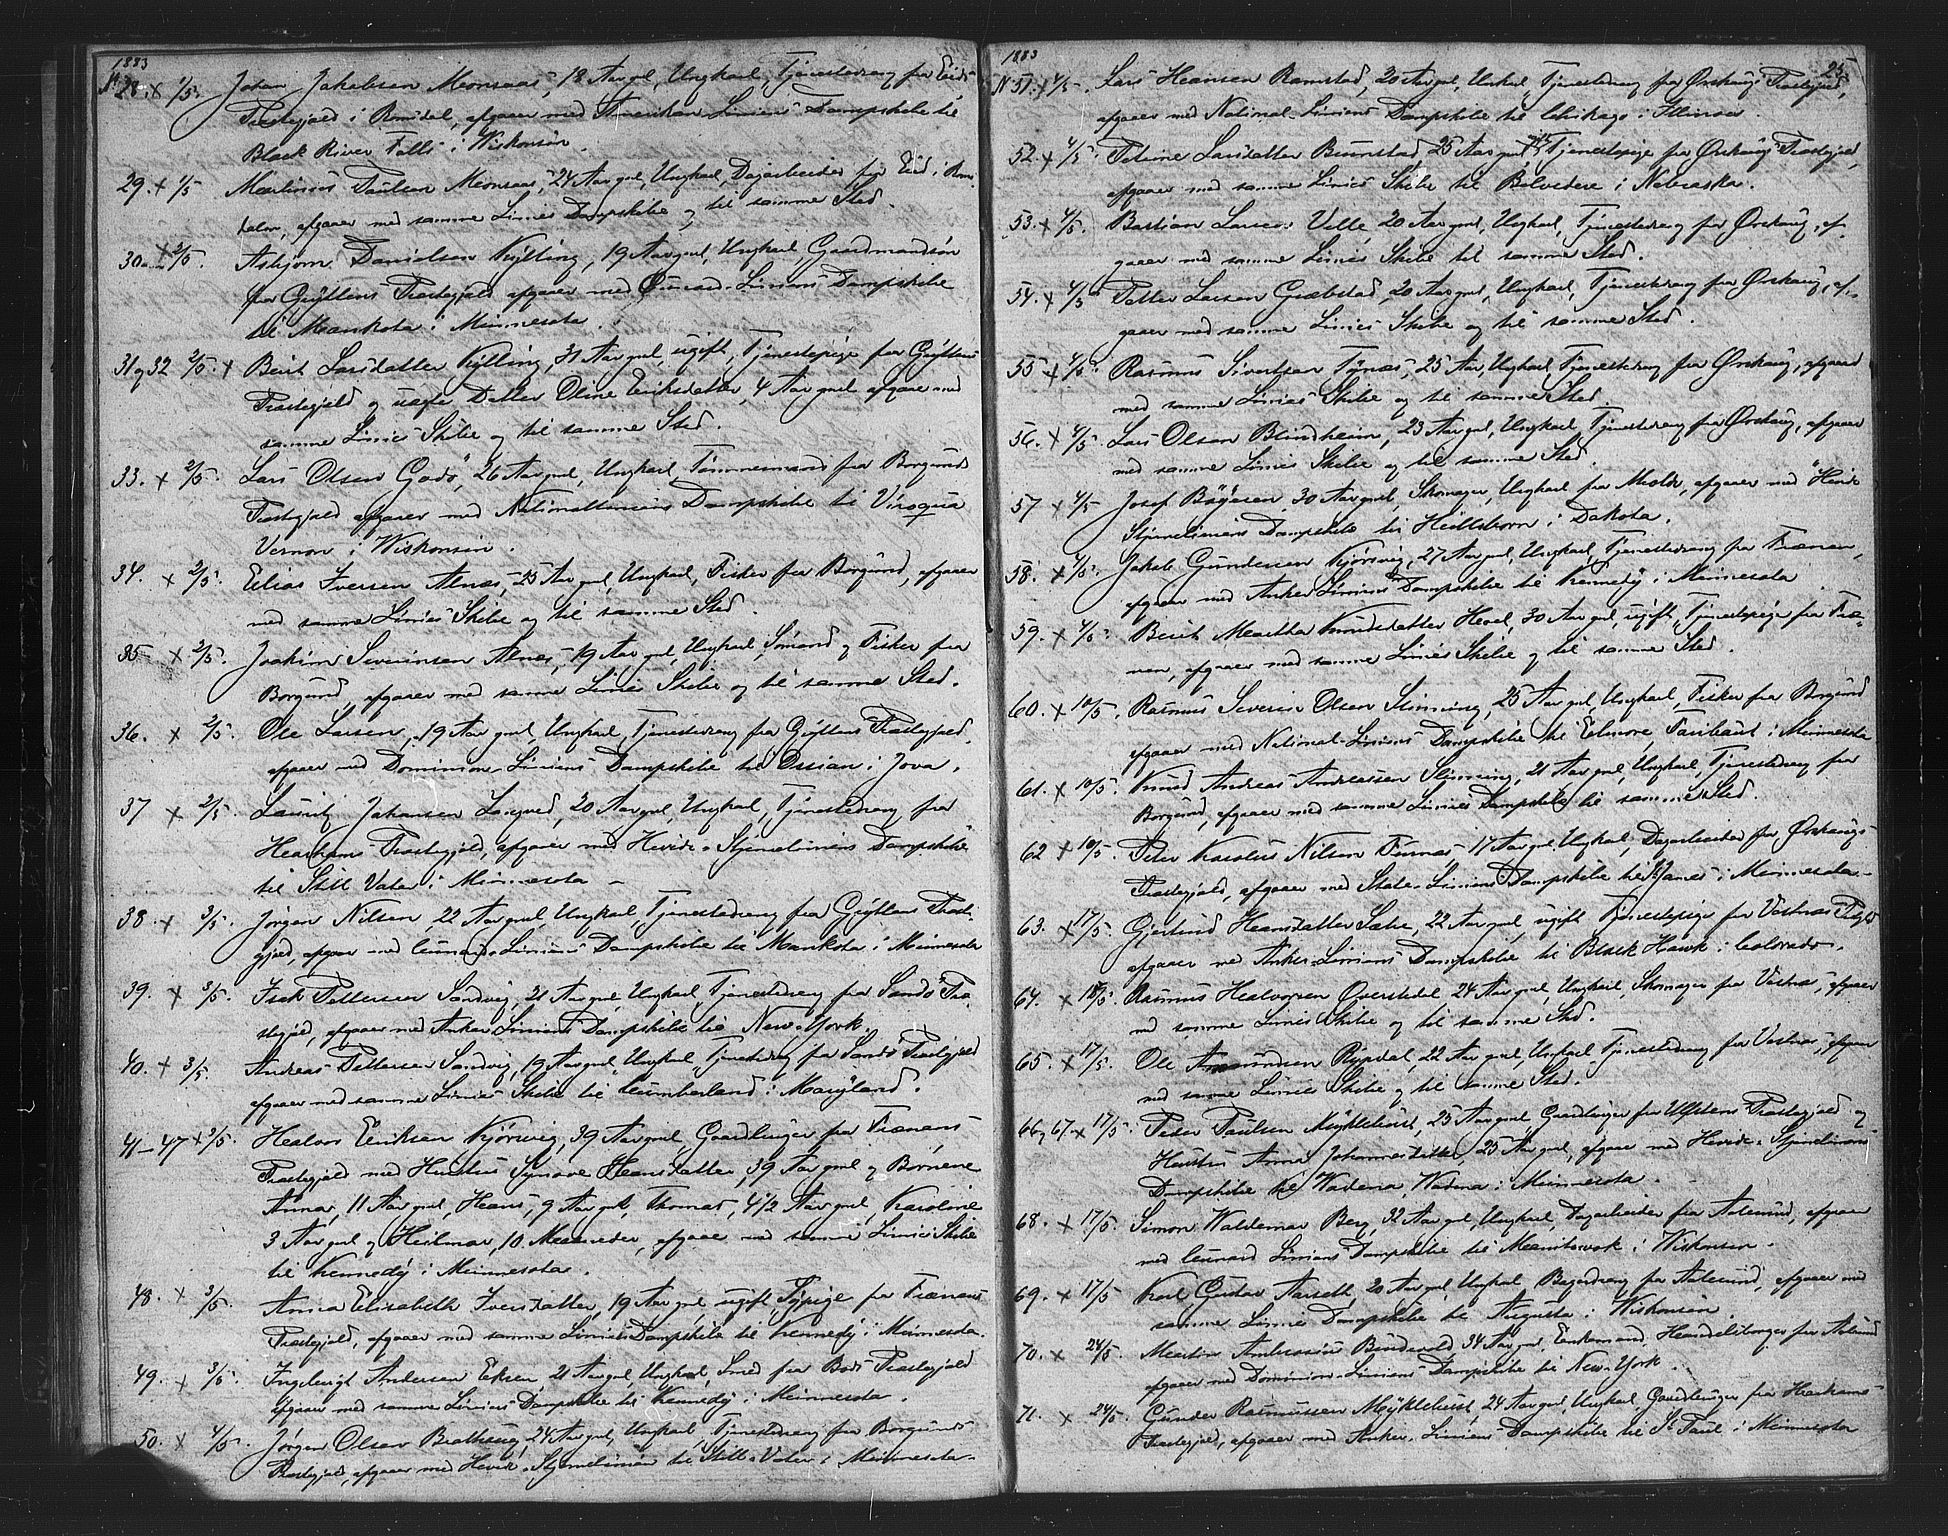 1883
No 28. x 1/5. Johan Jakobsen Monsaas, 18 Aar gml, Ungkarl, Tjenestedreng fra Eids
Prestegjeld i Romsdal, afgaaer med Amerikan-Liniens Dampskibe til
Black River Falls i Wiskonsin.
29. x 1/5 Martinus Paulsen Monsaas, 24 Aar gml, Ungkarl, Dagarbeider, fra Eid i Roms-
dalen, afgaaer med samme Linies Dampskibe og til samme Sted.
30. x 2/5. Asbjørn Danielsen Kylling, 19 Aar gml, Ungkarl, Gaardmandssøn
fra Gryttens Prestegjeld afgaaer med Cunard-Liniens Dampskibe
til Mankota i Minnesota.
31 og 32 2/5. x Berit Larsdatter Kylling, 31 Aar gml, ugift, Tjenestepige fra Gryttens
Prestegjeld og uægte Datter Oline Eriksdatter, 4 Aar gml afgaaer med
samme Linies Skibe og til samme Sted.
33. x 2/5. Lars Olsen Godø, 26 Aar gml, Ungkarl, Tømmermand fra Borgunds
Prestegjeld afgaaer med Nationalliniens Dampskibe til Viroqua
Vernon i Wiskonsin.
34. x 2/5. Elias Iversen Alnæs, 25 Aar gml, Ungkarl, Fisker fra Borgund, afgaaer
med samme Linies Skibe og til samme Sted.
35 x 2/5. Joakim Severinsen Alnes, 19 Aar gml, Ungkarl, Sømand og Fisker fra
Borgund, afgaaer med samme Linies Skibe og til samme Sted.
36. x 2/5. Ole Larsen, 19 Aar gml, Ungkarl, Tjenestedreng fra Gryttens Prestegjeld,
afgaaer med Dominion-Liniens Dampskibe til Ossian i Jova.
37 x 2/5. Lauritz Johansen Langved, 20 Aar gml, Ungkarl, Tjenestedreng fra
Harhams Prestegjeld, afgaaer med Hvide-Stjerneliniens Dampskibe
til Still Vater i Minnesota
38. x 3/5. Jørgen Nilsen, 22 Aar gml, Ungkarl, Tjenestedreng fra Gryttens Preste-
gjeld, afgaaer med Cunard-Liniens Dampskibe til Mankota i Minnesota
39. x 3/5. Isak Pettersen Sandvig, 21 Aar gml, Ungkarl, Tjenestedreng fra Sandø Pre-
stegjeld, afgaaer med Anker Liniens Dampskibe til New-York.
40. x 3/5 Andreas Pettersen Sandvig, 19 Aar gml, Ungkarl, Tjenestedreng fra Sandø Prestegjeld
afgaaer med samme Linies Skibe til Cumberland i Maryland.
41–47 x 3/5. Halvor Eriksen Kjørsvig, 39 Aar gml, Gaardbruger fra Frænens
Prestegjeld med Hustru Synøve Hansdatter, 39 Aar gml og Børnene
Anna, 11 Aar gml, Hans, 9 Aar gml, Thomas, 4 1/2 Aar gml, Karoline
3 Aar gml og Hilmar, 10 Maaneder, afgaaer med samme Linies Skibe
til Kennedy i Minnesota.
48. x 3/5. Anna Elisabeth Iversdatter, 19 Aar gml, ugift, Tjpige fra Frænens
Prestegjeld, afgaaer med samme Linies Dampskibe til Kennedy i Minnesota.
49. x 3/5. Ingebrigt Andersen Eksen 21 Aar gml, Ungkarl, Smed fra Bods Prestegjeld
afgaaer med samme Linies Dampskibe til Kennedy i Minnesota.
50. x 4/5. Jørgen Olsen Brathaug, 24 Aar gml, Ungkarl, Tjenestedreng fra Borgunds
Prestegjeld, afgaaer med Hvide-Stjernelinien til Still-Vater i Minnesota.
1883 25.
N 51. x 4/5. Lars Hansen Ramstad, 20 Aar gml, Unkarl, Tjenestedreng fra Ørskougs Prestegjeld,
afgaaer med National-Liniens Dampskibe til Chikago i Illinois.
52. x 4/5. Petrine Larsdatter Brunstad, 25 Aar gml, ugift Tjenestepige fra Ørskougs Prestegjeld,
afgaaer med samme Linies Skibe til Belvedere i Nebraska.
53. x 4/5. Bastian Larsen Velle, 20 Aar gml, Ungkarl, Tjenestedreng fra Ørskoug, af-
gaaer med samme Linies Skibe til samme Sted.
54. x 4/5 Petter Larsen Græbstad, 20 Aar gml, Ungkarl, Tjenestedreng fra Ørskoug, af-
gaaer med samme Linies Skibe og til samme Sted.
55 x 4/5. Rasmus Sivertsen Tynes, 25 Aar, Ungkarl, Tjenestedreng fra Ørskoug, afgaaer
med samme Linies Skibe og til samme Sted.
56. x 4/5. Lars Olsen Blindheim, 23 Aar gml, Ungkarl, Tjenestedreng fra Ørskoug, afgaaer
med samme Linies Skibe og til samme Sted.
57 x 4/5 Josef Bøgesen, 30 Aar gml, Skomager, Ungkarl fra Molde, afgaaer med Hvide
Stjerneliniens Dampskibe til Hillsborn i Dakota.
58. x 4/5. Jakob Gundersen Kjørsvig, 27 Aar gml, Ungkarl, Tjenestedreng fra Frænen,
afgaaer med Anker Liniens Dampskibe til Kennedy i Minnesota
59. x 4/5. Berit Martha Knudsdatter Hovel, 30 Aar gml, ugift, Tjenestepige fra Fræ-
nen, afgaaer med samme Linies Skibe og til samme Sted.
60. x 10/5. Rasmus Severin Olsen Slinning, 25 Aar gml, Ungkarl, Fisker fra Borgund
afgaaer med National-Liniens Dampskibe til Elmore, Faribaut i Minnesota
61. x 10/5. Knud Andreas Andreassen Slinning, 21 Aar gml, Ungkarl, Tjenestedreng fra
Borgund, afgaaer med samme Linies Dampskibe til samme Sted.
62 x 10/5. Peter Karolus Nilsen Furnæs, 17 Aar gml Ungkarl, Dagarbeider fra Ørskougs
Prestegjeld, afgaaer med State-Liniens Dampskibe til St Janes i Minnesota.
63. x 17/5. Gjertrud Hansdatter Sætre, 22 Aar gml, ugift Tjenestepige fra Vestnæs Prstgjld
afgaaer med Anker-Liniens Dampskibe til Black Hawk i Colorado.
64. x 17/5. Rasmus Halvorsen Øverstedal, 24 Aar gml, Ungkarl, Skomager fra Vestnæs, afgaaer
med samme Linies Skibe og til samme Sted.
65. x 17/5. Ole Amundsen Rypdal, 22 Aar gml, Ungkarl Tjenestedreng fra Vestnæs, afgaaer
med samme Linies Skibe og til samme Sted.
66 og 67. x 17/5. Peder Paulsen Myklebust, 25 Aar gml, Gaardbruger fra Ulfstens Prestegjeld og
Hustru Anna Johannesdatter, 25 Aar gml, afgaaer med Hvide-Stjerneliniens
Dampskibe til Wadena, Wadena i Minnesota.
68. x 17/5. Simon Waldemar Berg, 32 Aar gml, Ungkarl, Dagarbeider fra Aalesund, afgaaer
med Cunard Liniens Dampskibe til Manitovok i Wiskonsin.
69. x 17/5 Karl Gustav Aarseth, 20 Aar gml, Ungkarl Bagerdreng fra Aalesund, afgaaer med
samme Linies Dampskibe til Augusta i Wiskonsin.
70. x 24/5. Martin Andreassen Bindevold 34 Aar gml, Enkemand, Handelsborger fra Aalesund
afgaaer med Dominion-Liniens Dampskibe til New-York.
71. x 24/5. Gunder Rasmussen Myklebust, 24 Aar gml, Ungkarl Gaardbruger fra Harhams
Prestegjeld, afgaaer med Anker-Liniens Dampskibe til St Paul i Minnesota